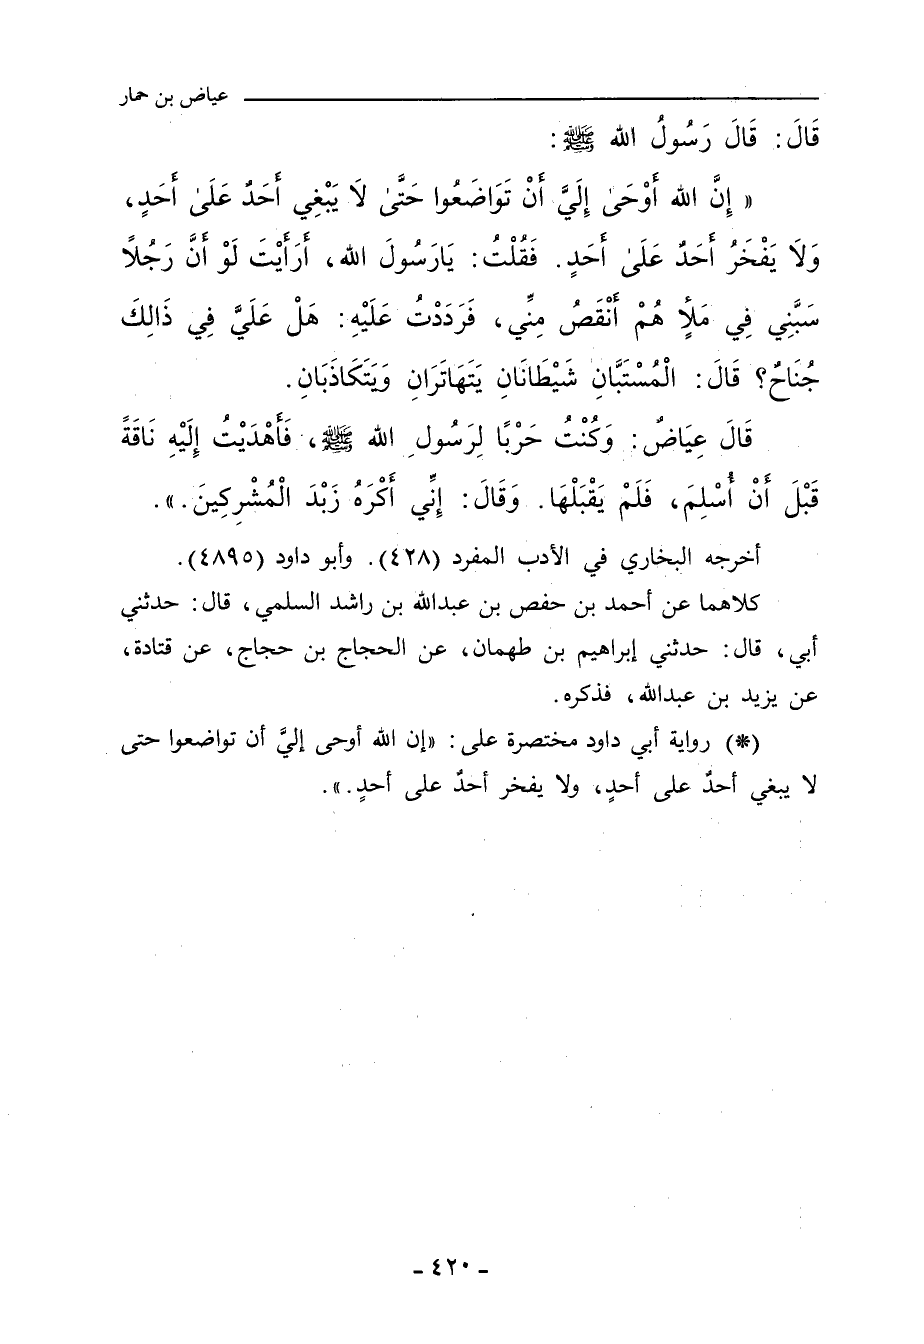 عياض بن حمار
قَالَ: قَالَ رَسُولُ الله ﷺ:
« إِنَّ الله أَوْحَىٰ إِلَيَّ أَنْ تَوَاضَعُوا حَتَّىٰ لَا يَبْغِي أَحَدٌ عَلَىٰ أَحَدٍ،
وَلَا يَفْخَرُ أَحَدٌ عَلَىٰ أَحَدٍ. فَقُلْتُ: يَارَسُولَ الله، أَرَأَيْتَ لَوْ أَنَّ رَجُلًا
سَبَّنِي فِي مَلَأٍ هُمْ أَنْقَصُ مِنِّي، فَرَدَدْتُ عَلَيْهِ: هَلْ عَلَيَّ فِي ذَالِكَ
جُنَاحٌ؟ قَالَ: الْمُسْتَبَّانِ شَيْطَانَانِ يَتَهَاتَرَانِ وَيَتَكَاذَبَانِ.
قَالَ عِيَاضٌ: وَكُنْتُ حَرْبًا لِرَسُولِ الله ﷺ، فَأَهْدَيْتُ إِلَيْهِ نَاقَةً
قَبْلَ أَنْ أُسْلِمَ، فَلَمْ يَقْبَلْهَا. وَقَالَ: إِنِّي أَكْرَهُ زَبْدَ الْمُشْرِكِينَ.».
أخرجه البخاري في الأدب المفرد (٤٢٨). وأبو داود (٤٨٩٥).
كلاهما عن أحمد بن حفص بن عبدالله بن راشد السلمي، قال: حدثني
أبي، قال: حدثني إبراهيم بن طهمان، عن الحجاج بن حجاج، عن قتادة،
عن يزيد بن عبدالله، فذكره.
(*) رواية أبي داود مختصرة على: «إن الله أوحى إليَّ أن تواضعوا حتى
لا يبغي أحدٌ على أحدٍ، ولا يفخر أحدٌ على أحدٍ.».
- ٤٢٠ -